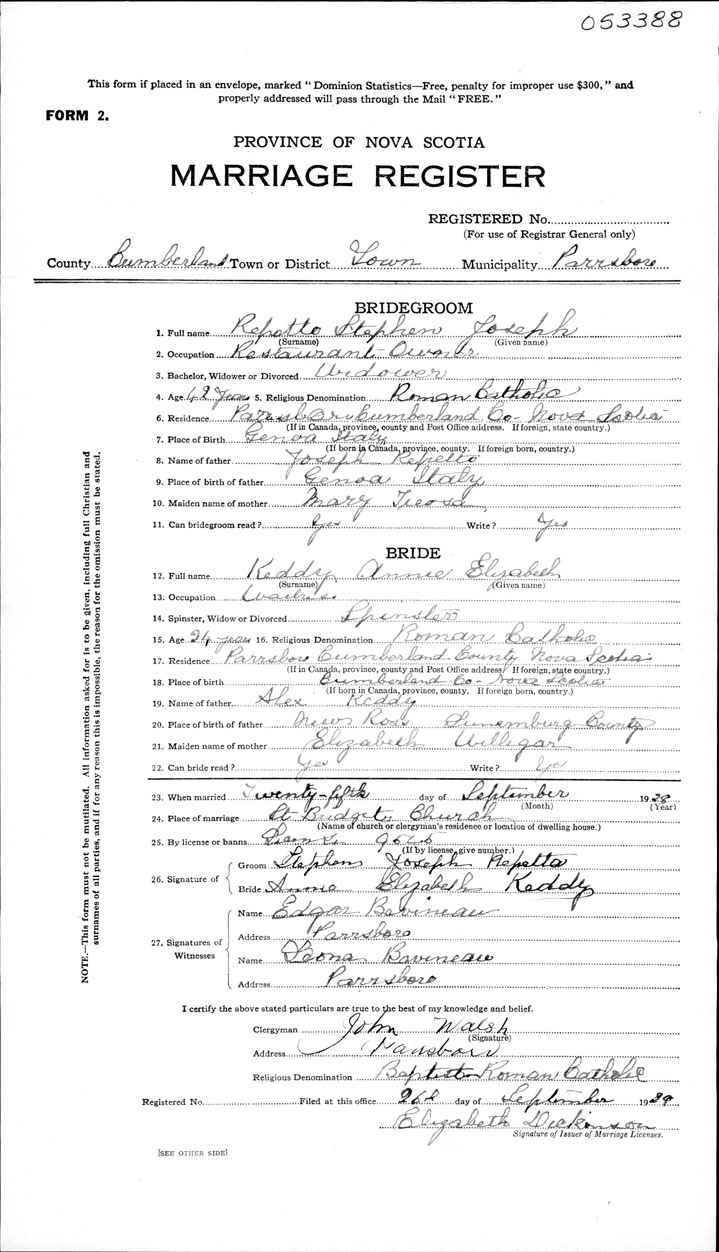 053388
This form if placed in an envelope, marked "Dominion Statistics—Free, penalty for improper use $300," and
properly addressed will pass through the Mail "FREE."
FORM 2.
PROVINCE OF NOVA SCOTIA
MARRIAGE REGISTER
REGISTERED No.
(For use of Registrar General only)
County Cumberland Town or District Town Municipality Parrsboro
BRIDEGROOM
1. Full name Repetto Stephen Joseph
(Surname) (Given name)
2. Occupation Restaurant Owner
3. Bachelor, Widower or Divorced Widower
4. Age 42 Years 5. Religious Denomination Roman Catholic
6. Residence Parrsboro Cumberland Co- Nova Scotia
(If in Canada, province, county and Post Office address. If foreign, state country.)
7. Place of Birth Genoa Italy
(If born in Canada, province, county. If foreign born, country.)
8. Name of father Joseph Repetto
9. Place of birth of father Genoa Italy
10. Maiden name of mother Mary
11. Can bridegroom read? Yes Write? Yes
BRIDE
12. Full name Keddy Annie Elizabeth
(Surname) (Given name)
13. Occupation Waitress
14. Spinster, Widow or Divorced Spinster
15. Age 24 years 16. Religious Denomination Roman Catholic
17. Residence Parrsboro Cumberland County Nova Scotia
(If in Canada, province, county and Post Office address. If foreign, state country.)
18. Place of birth Cumberland Co- Nova Scotia
(If born in Canada, province, county. If foreign born, country.)
19. Name of father Alex Keddy
20. Place of birth of father New Ross Lunenburg County
21. Maiden name of mother Elizabeth Willigar
22. Can bride read? Yes Write? Yes
23. When married Twenty-fifth day of September 1929
(Month) (Year)
24. Place of marriage St Bridget Church
(Name of church or clergyman's residence or location of dwelling house.)
25. By license or banns
(If by license, give number.)
26. Signature of Groom Stephen Joseph Repetto
Bride Annie Elizabeth Keddy
27. Signatures of Witnesses
Name Edgar Bavineau
Address Parrsboro
Name Leona Bavineau
Address Parrsboro
I certify the above stated particulars are true to the best of my knowledge and belief.
Clergyman John Walsh
(Signature)
Address Parrsboro
Religious Denomination Roman Catholic
Registered No. Filed at this office 26th day of September 1929
Elizabeth Dickinson
Signature of Issuer of Marriage Licenses.
[SEE OTHER SIDE]
NOTE.—This form must not be mutilated. All information asked for is to be given, including full Christian and
surnames of all parties, and if for any reason this is impossible, the reason for the omission must be stated.